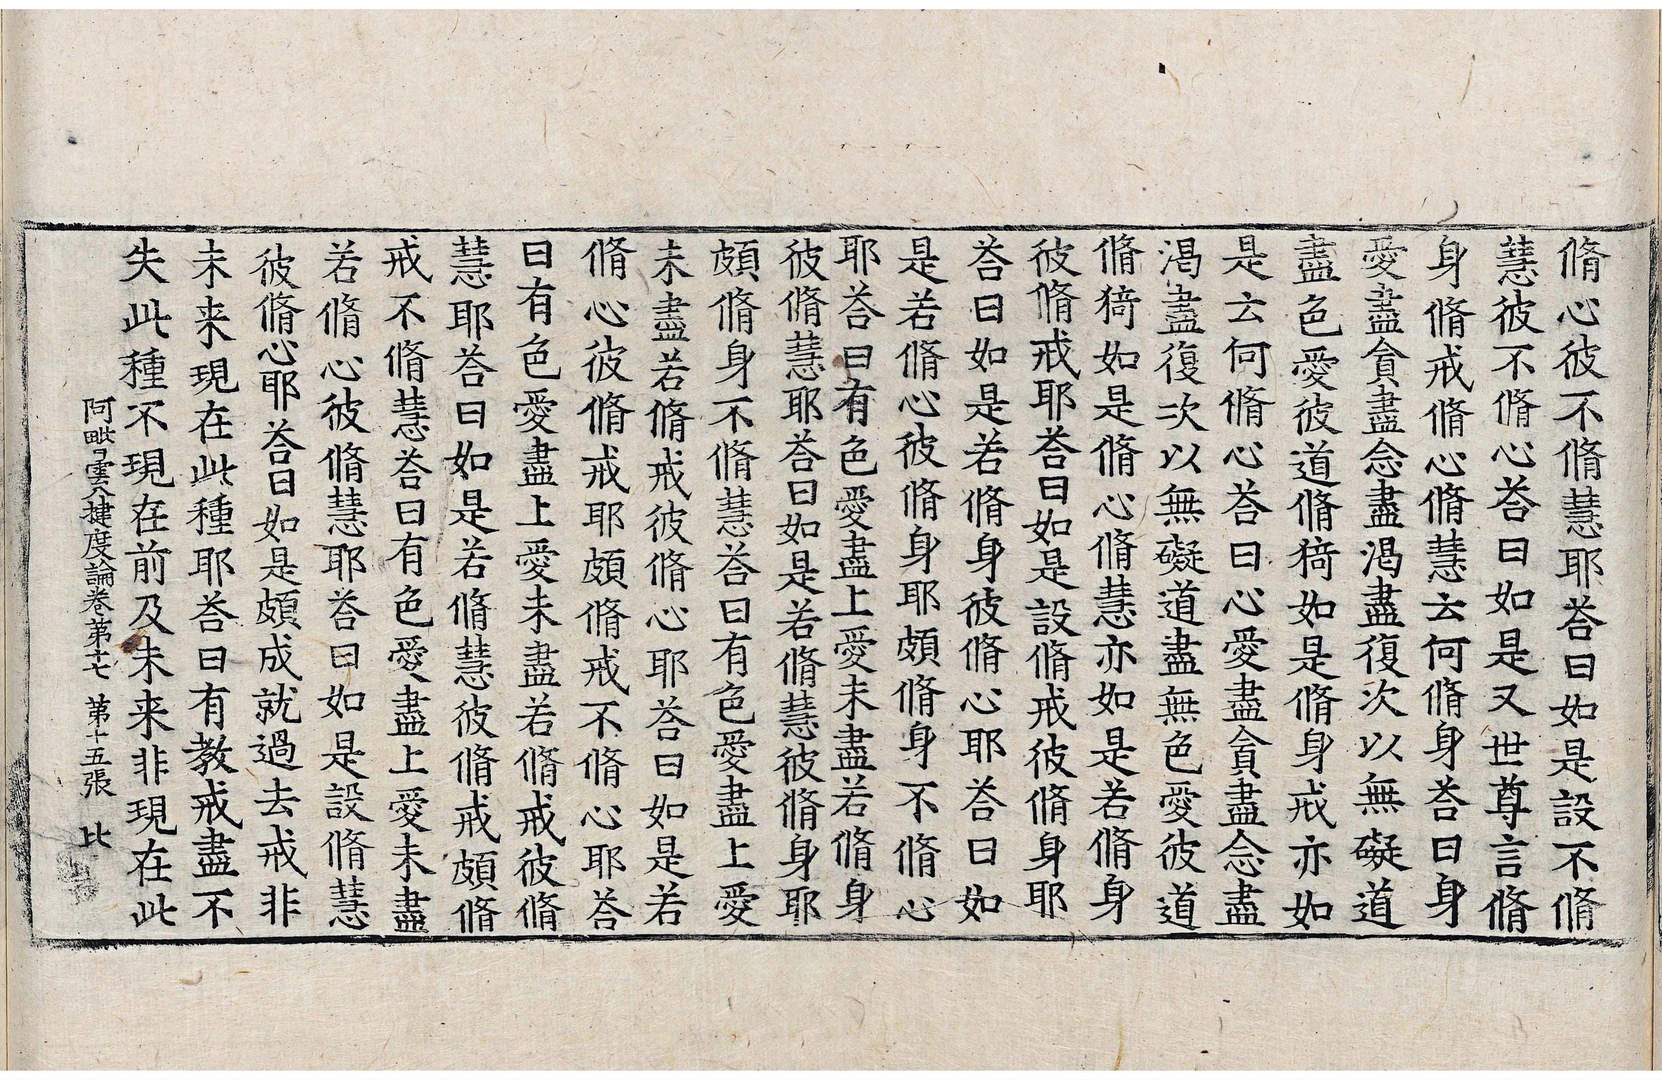 脩心彼不脩慧耶荅曰如是設不脩
慧彼不脩心荅曰如是又世尊言脩
身脩戒脩心脩慧云何脩身荅曰身
愛盡貪盡念盡渴盡復次以無礙道
盡色愛彼道脩猗如是脩身戒亦如
是云何脩心荅曰心愛盡貪盡念盡
渴盡復次以無礙道盡無色愛彼道
脩猗如是脩心脩慧亦如是若脩身
彼脩戒耶荅曰如是設脩戒彼脩身耶
荅曰如是若脩身彼脩心耶荅曰如
是若脩心彼脩身耶頗脩身不脩心
耶荅曰有色愛盡上愛未盡若脩身
彼脩慧耶荅曰如是若脩慧彼脩身耶
頗脩身不脩慧荅曰有色愛盡上愛
未盡若脩戒彼脩心耶荅曰如是若
脩心彼脩戒耶頗脩戒不脩心耶荅
曰有色愛盡上愛未盡若脩戒彼脩
慧耶荅曰如是若脩慧彼脩戒頗脩
戒不脩慧荅曰有色愛盡上愛未盡
若脩心彼脩慧耶荅曰如是設脩慧
彼脩心耶荅曰如是頗成就過去戒非
未来現在此種耶荅曰有教戒盡不
失此種不現在前及未来非現在此
阿毗曇八揵度論卷第十七 第十五張 比